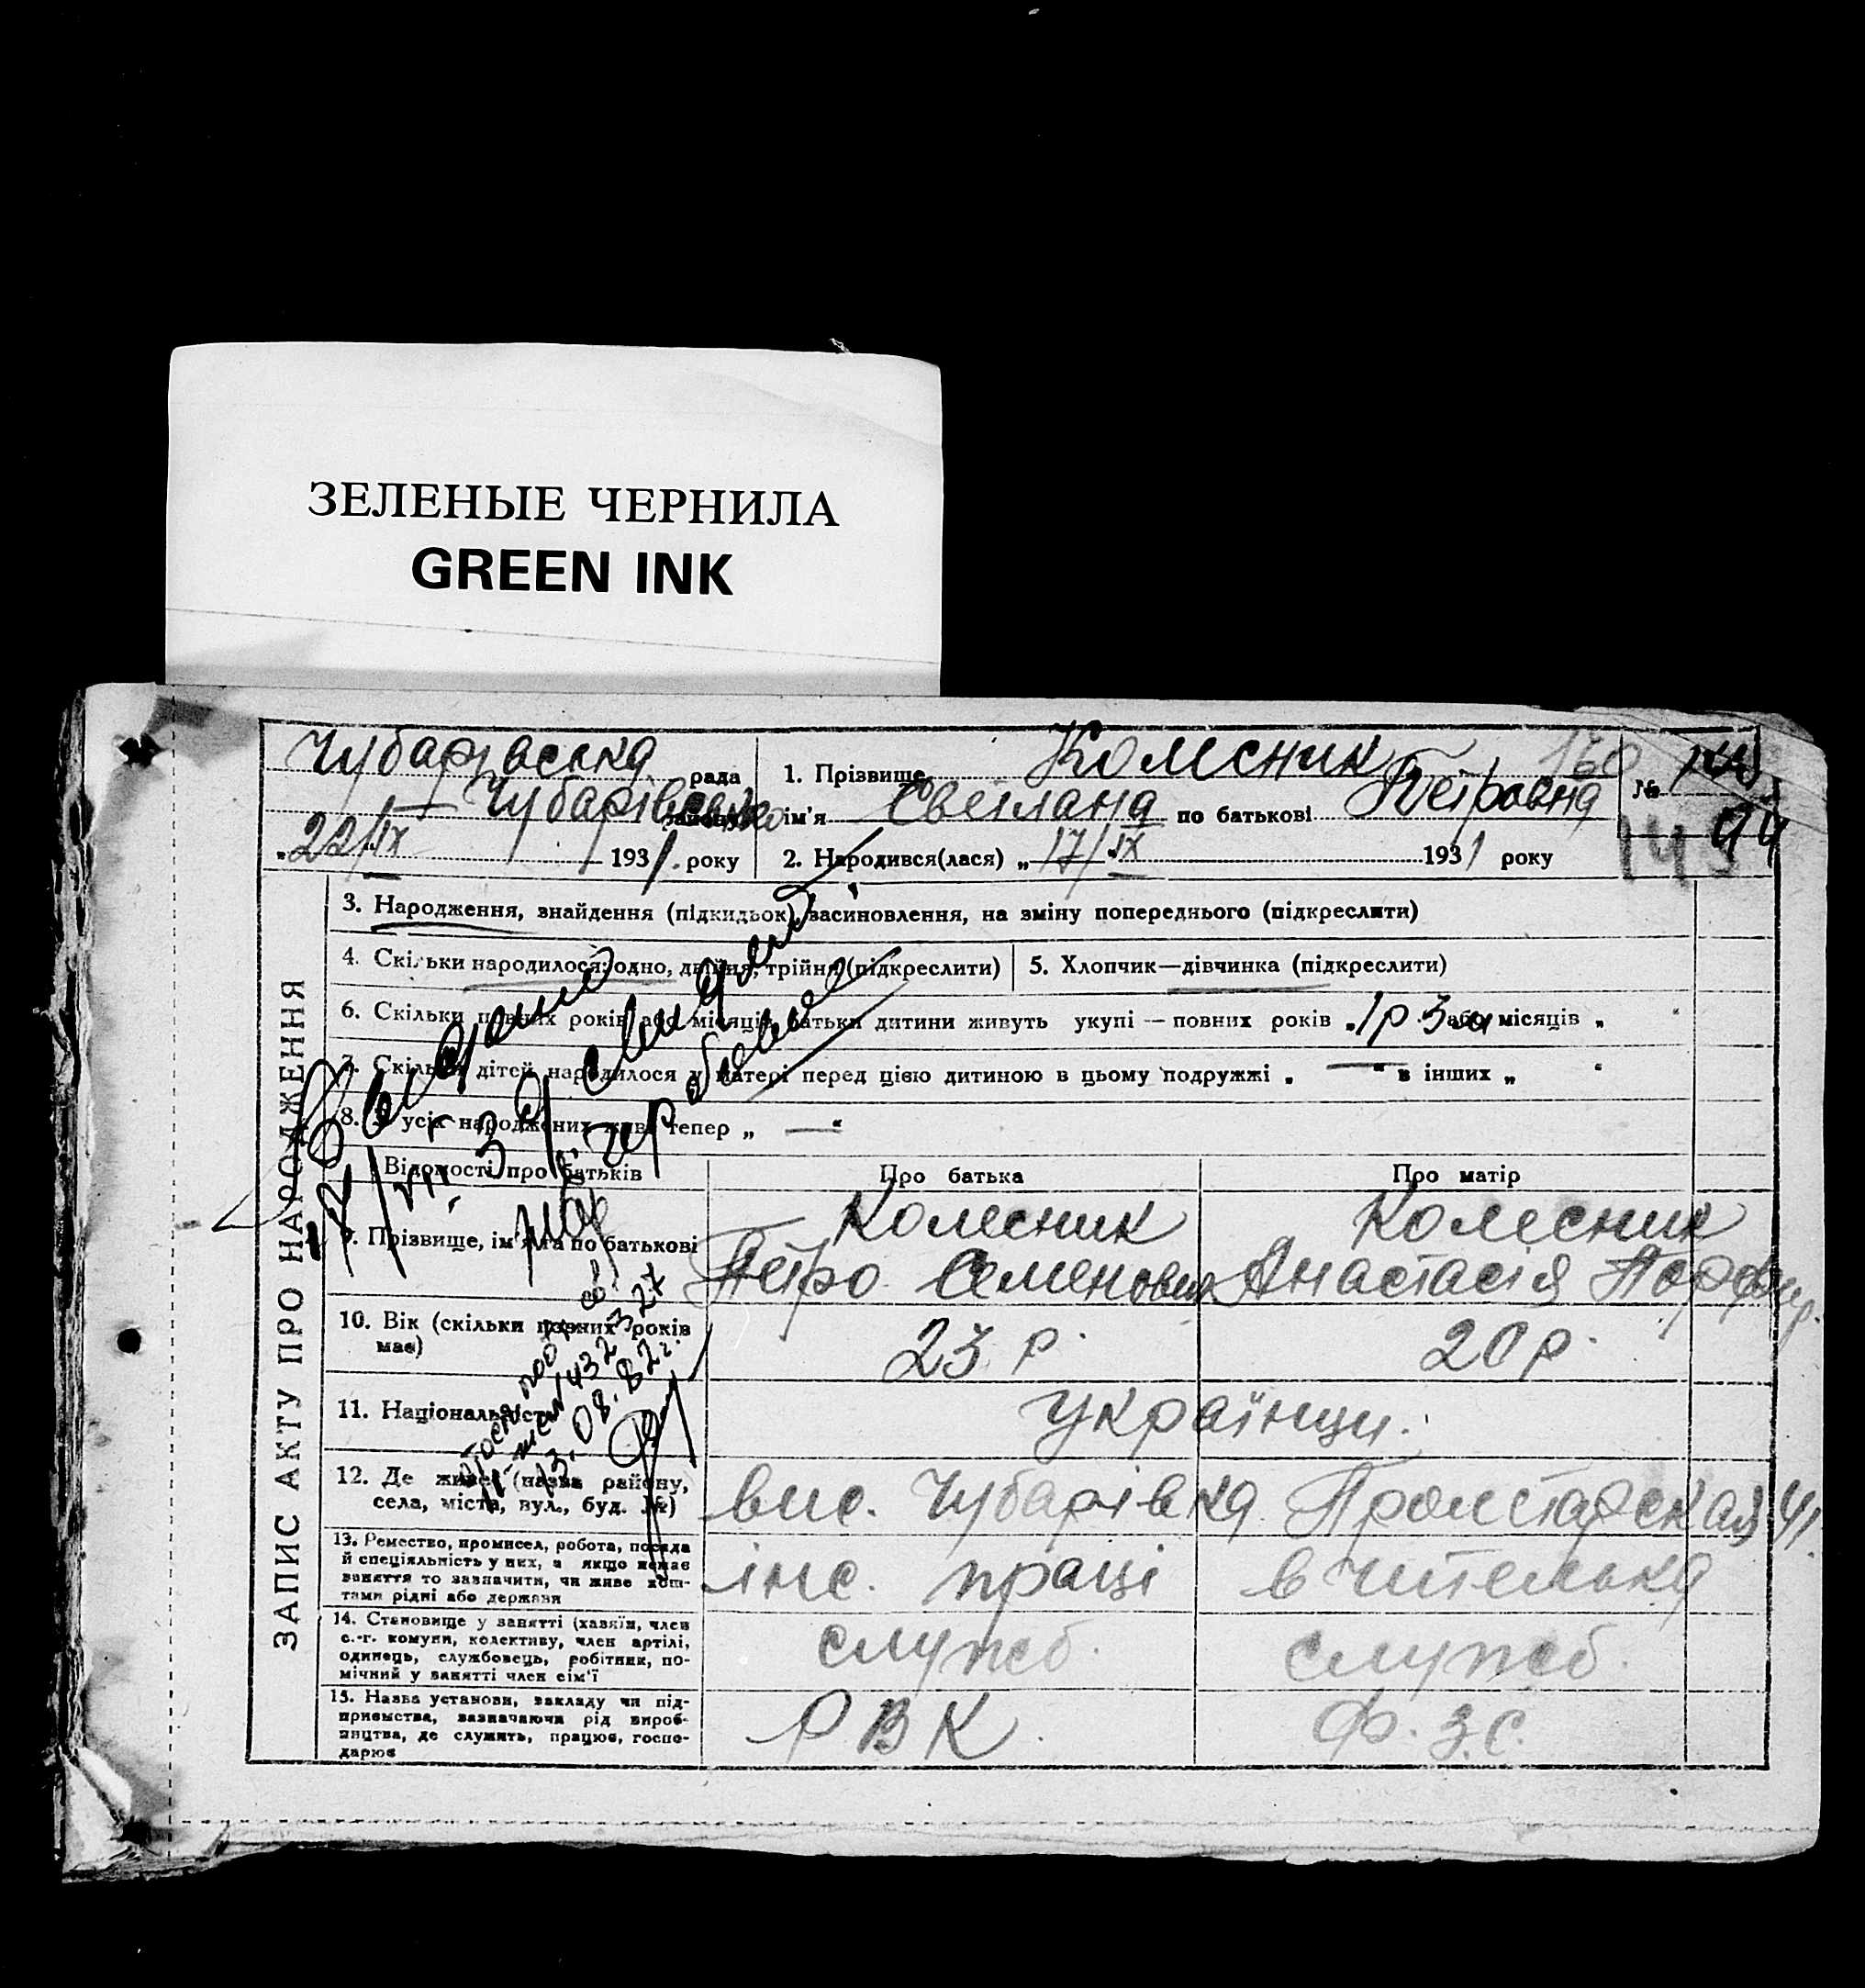 ЗЕЛЕНЫЕ ЧЕРНИЛА
GREEN INK
ЗАПИС АКТУ ПРО НАРОДЖЕННЯ
Чубарівська рада
Чубарівського району
"22/ІХ 1931. року
1. Прізвище Колесник
ім'я Светлана по батькові Петровна
2. Народився(лася) „17/ІХ 1931 року
160
№
94
143
3. Народження, знайдення (підкидьок), засиновлення, на зміну попереднього (підкреслити)
4. Скільки народилося: одно, двійня, трійня (підкреслити)
5. Хлопчик—дівчинка (підкреслити)
6. Скільки повних років або місяців батьки дитини живуть укупі — повних років „1р 3м або місяців „ "
7. Скільки дітей народилося у матері перед цією дитиною в цьому подружжі „ — " в інших „ "
8. З усіх народжених живі тепер „ — "
Відомості про батьків
Про батька
Про матір
9. Прізвище, ім'я та по батькові
Колесник
Петро Семенович
Колесник
Анастасія Порфир.
10. Вік (скільки повних років має)
23 р.
20 р.
11. Національність
Українци.
12. Де живе (назва району,
села, міста, вул., буд. №)
вис. Чубарівка Пролетарская 41.
13. Ремество, промисел, робота, посада
й спеціяльність у них, а якщо немає
заняття то зазначити, чи живе кош-
тами рідні або держави
інс. праці
вчителька
14. Становище у занятті (хазяїн, член
с.-г. комуни, колективу, член артілі,
одинець, службовець, робітник, по-
мічний у занятті член сім'ї
служб.
служб.
15. Назва установи, закладу чи під-
приємства, зазначаючи рід вироб-
ництва, де служить, працює, госпо-
дарює
РВК.
Ф.З.С.
13.08.82г.